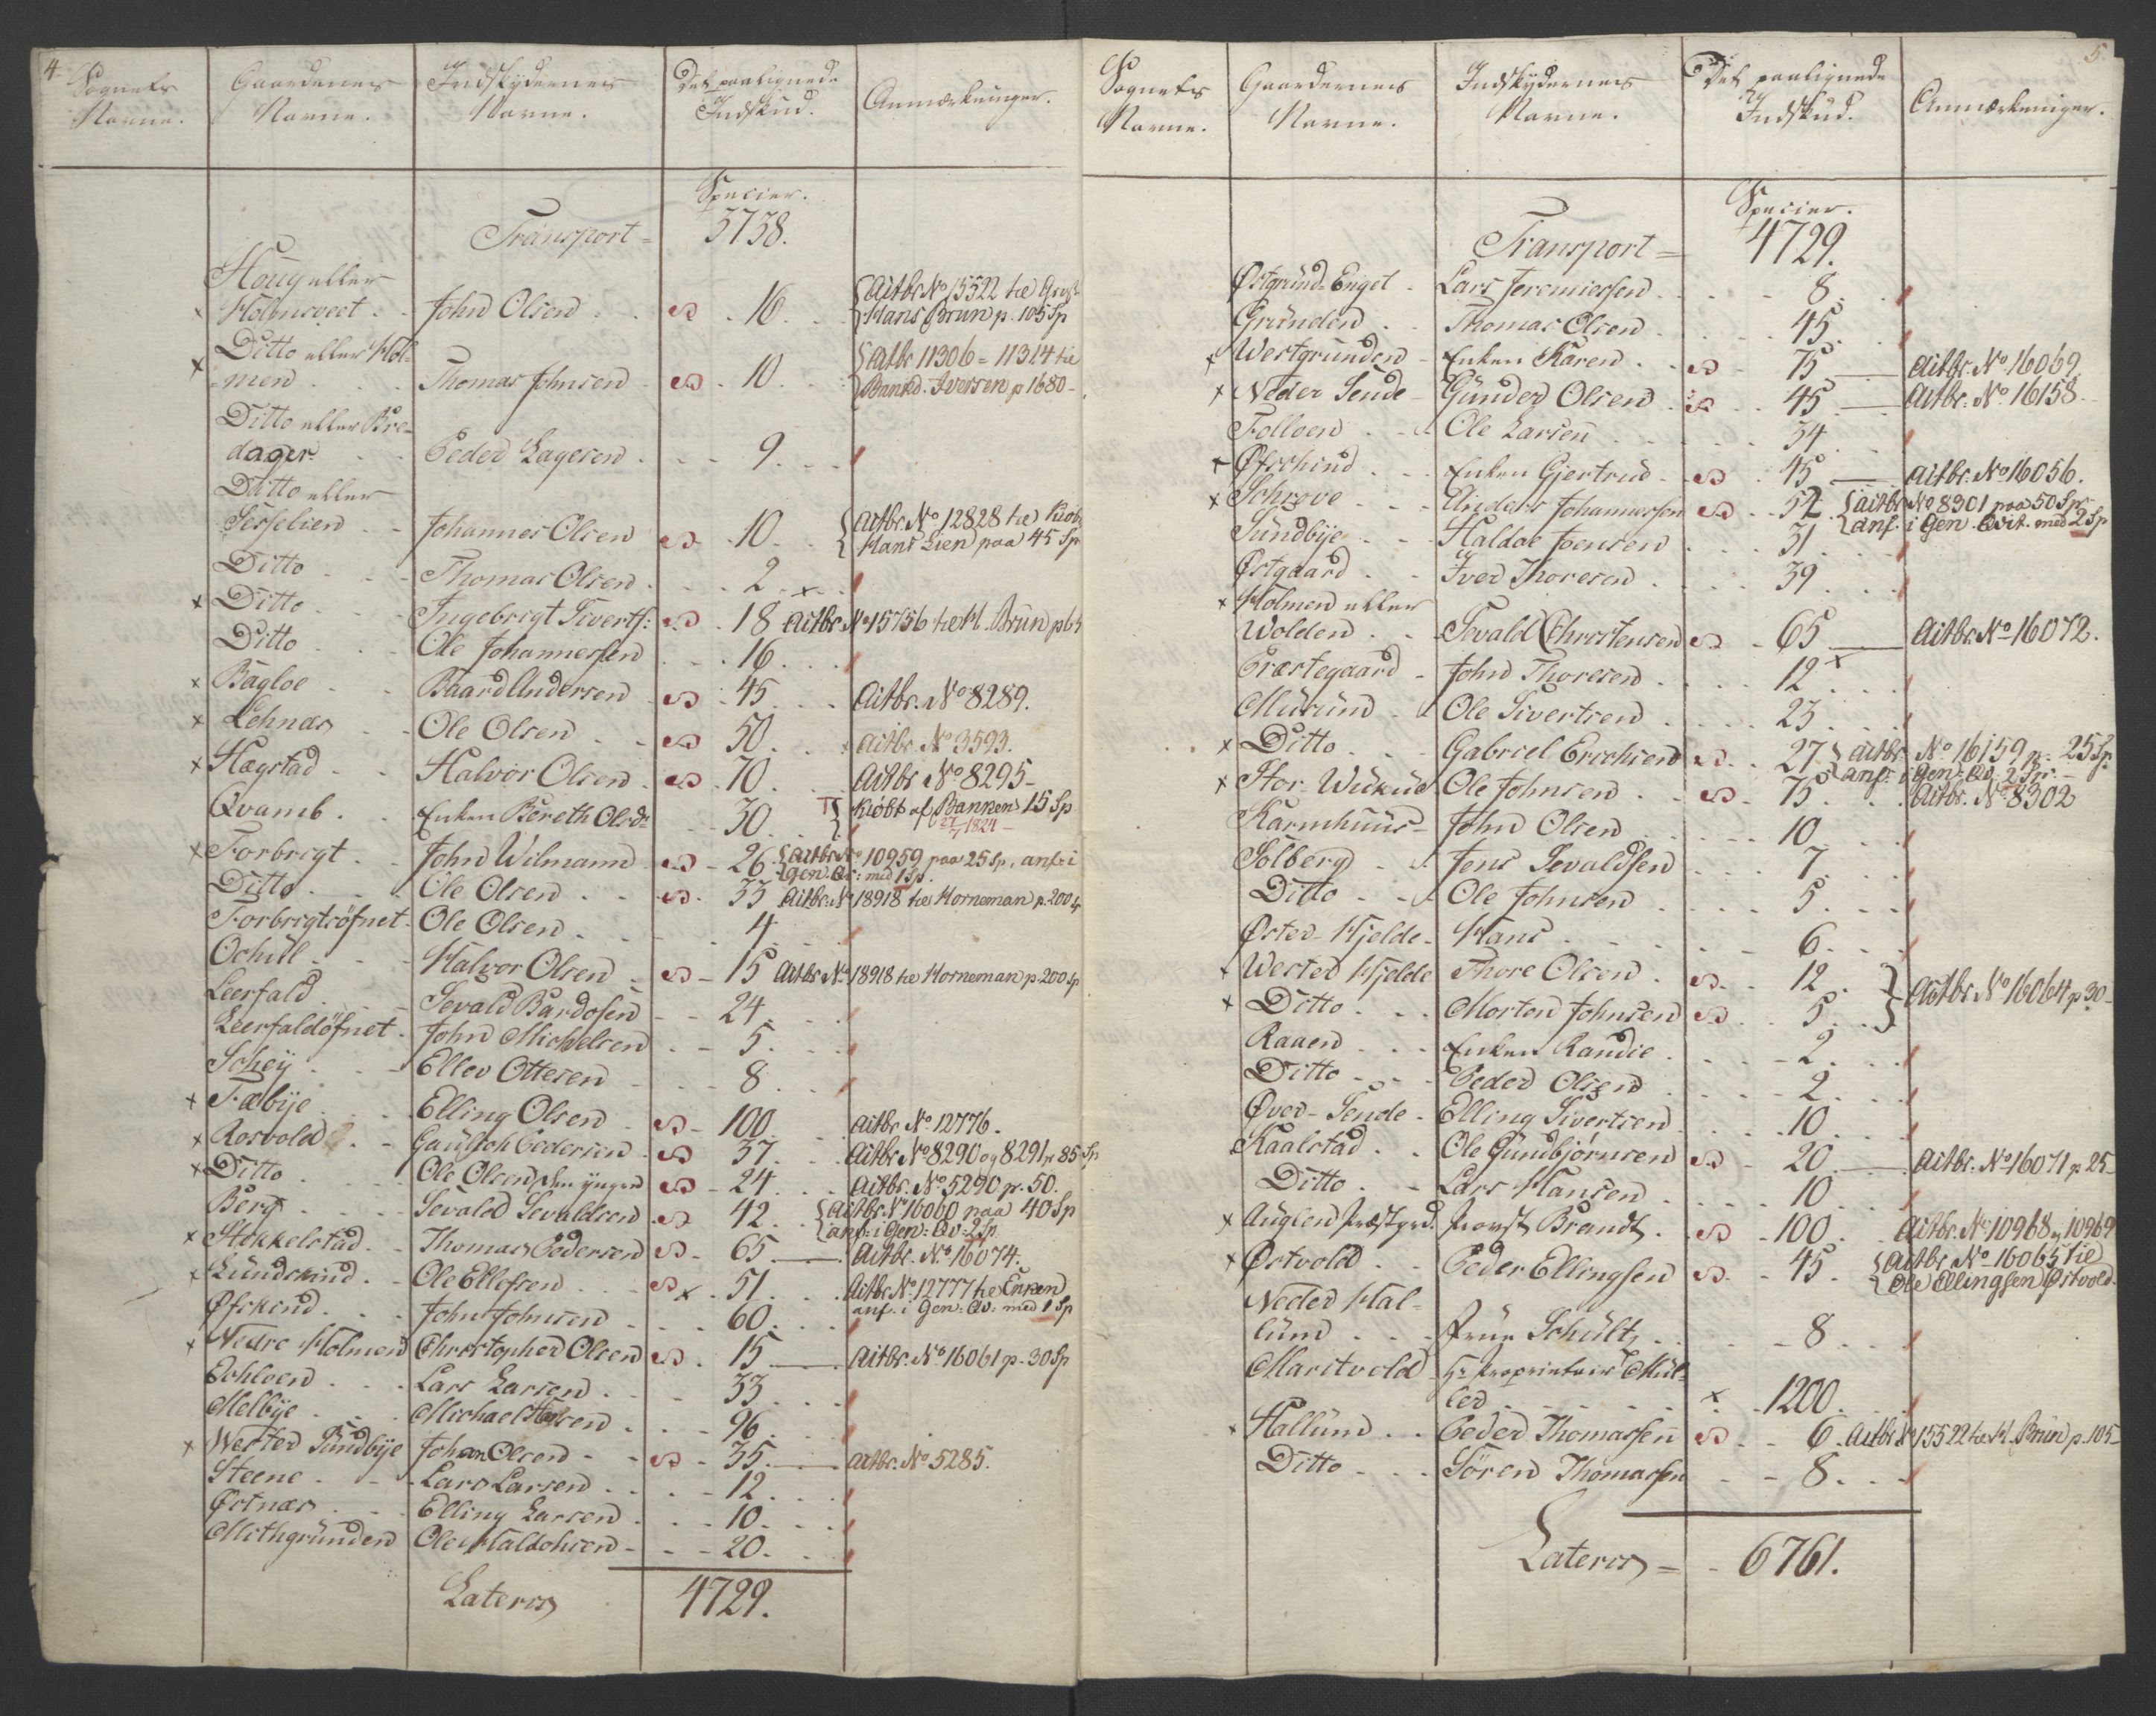 4
Sognets Navne. Gaardenes Navne. Indskydernes Navne. Det paalignede Indskud. Anmærkninger.
Specier.
Transport = 3738.
Houg eller
Holmsveet . . John Olsen . . 16. Actbr. No 15522 til Grosh. Hans Brun p. 105 Sp
Ditto eller Hol-
men . . Thomas Johnsen . 10. Actbr 11306 = 11314 til Bankd. Iversen p 1680 -
Ditto eller Bre-
dager . . Peder Lagesen . . 9.
Ditto eller
Sesselien - Johannes Olsen . 10. Actbr. No 12828 til Kiøb. Hans Lien paa 45 Sp
Ditto . . Thomas Olsen . . 2.
Ditto . . Ingebrigt Siverts: 18 Actbr. No 15756 til H. Brun p 65
Ditto . . Ole Johannessen . 16.
Bagloe . . Baard Andersen . 45. Actbr. No 8289.
Lehnæs . . Ole Olsen . . 50. Actbr. No 3593.
Hægstad . . Halvor Olsen . 70. Actbr No 8295 -
Qvamb . . Enken Bereth Olsdr 30. Kiøbt af Banken 15 Sp
27/ 1824 -
Forbregt . . John Wilmann - 26. Actbr No 10959 paa 25 Sp, anf. i Gen. Qv: med 1 Sp.
Ditto . . Ole Olsen . . 33 Actbr. No 18918 til Horneman p. 200 Sp
Forbregtsöfnet. Ole Olsen . . 4
Ochull . . Halvor Olsen - 15 Actbr No 18918 til Horneman p. 200 Sp
Leerfald . . Sevald Bardosen - 24.
Leerfaldöfnet. John Michelsen . 5.
Schey . . Ellev Ottesen . . 8
Fæbye . . Elling Olsen - 100 Actbr No 12776.
Rosvold . . Pedersen - 37. Actbr No 8290 og 8291 p 85 Sp
Ditto . . Ole Olsen den yngre - 24. Actbr. No 5290 p. 50.
Berg . . Sevald Sevaldsen - 42. Actbr. No 16060 paa 40 Sp anf. i Gen: Qv: 2 Sp.
Stokkelstad . . Thomas Pedersen - 65 Actbr. No 16074.
Lundskind . . Ole Ellefsen . . 51. Actbr No 12777 til Enken anf. i Gen: Qv: med 1 Sp
Öfskind . . John Johnsen . . 60.
Nedre Holmen Christopher Olsen . 15 Actbr. No 16061 p. 30 Sp
Echloen . . Lars Larsen . . 33
Melbye . . Michael . . 96.
Wester Sundbye Johan Olsen - 35. Actbr. No 5285.
Steene . . Lars Larsen . . 12.
Østnæs . . Elling Larsen . . 10.
Mithgrunden Ole Haldohsen - 20.
Lateris 4729.
5.
Sognets Navne. Gaardernes Navne. Indskydernes Navne. Det paalignede Indskud. Anmærkninger.
Specier.
Transport = 4729.
Østgrund Enget . Lars Jeremiassen . . 8.
Grunden . . Thomas Olsen . . 45.
Westgrunden - Enken Karen . . 75 Actbr. No 16069.
Neder Sende - Gunder Olsen . . 45 Actbr. No 16158.
Folloen . . Ole Larsen . . 34
Øfschind . . Enken Gjertrud - 45 Actbr. No 16056.
Schrove . . Anders Johannessen . 52. Actbr No 8301 paa 50 Sp. anf. i Gen. Qvit. med 2 Sp
Sundbye . . Haldoe Joensen . 31
Østgaard . . Iver Thoresen . . 39
Holmen eller
Wolden . . Sevald Christensen - 65 Actbr. No 16072.
Præstegaard - John Thoresen . . 12
Murund . . Ole Sivertsen . . 23
Ditto . . Gabriel Erichsen . 27 Actbr No 16159 p. 25 Sp. anf. i Gen: Qv. 2 Sp. -
Stor- Wukue Ole Johnsen . . 75. Actbr. No 8302
Karmhuus - John Olsen . . 10.
Solberg . . Jens Sevaldsen . . 7.
Ditto . . Ole Johnsen . . 5.
Øster- Hjelde - Hans . . 6.
Wester Hjelde Thore Olsen . . 12.
Ditto . . Morten Johnsen . 5. Actbr. No 16064 p 30 -
Raaen . . Enken Randie . . 2.
Ditto . . Peder Olsen . . 2.
Øver- Sende . Elling Sivertsen . 10.
Kaalstad . . Ole Gundbjørnsen . 20 Actbr. No 16071 p. 25
Ditto . . Lars Hansen . . 10
Auglen Præstgrd. Provst Brandt . 100. Actbr. No 10968 og 10969
Østvold . . Peder Ellingsen . 45. Actbr. No 16065 til Ole Ellingsen Østvold.
Neder Hal-
lund . . Frue Schultz . . 8
Maritvold - Hr. Proprietair Mül-
ler . . 1200.
Hallund . . Peder Thomassen . 6. Actbr. No 15522 til H. Brun p. 105 -
Ditto . . Sören Thomassen - 8.
Lateris = 6761.